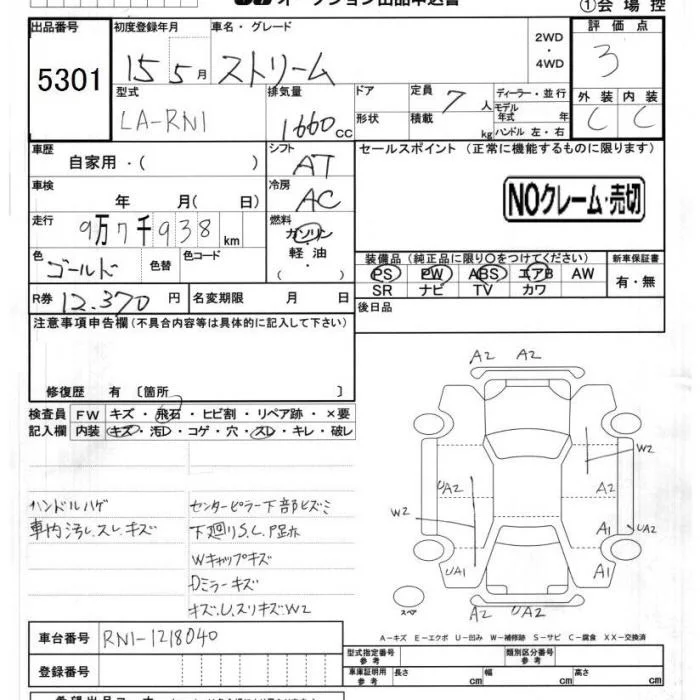 オークション出品申込書
①会場控
出品番号 5301
初度登録年月 15 5月
車名・グレード ストリーム
2WD・4WD
評価点 3
型式 LA-RN1
排気量 1660cc
ドア 形状
定員 7人
積載 kg
ディーラー・並行
モデル年式 年
ハンドル 左・右
外装 C 内装 C
車歴 自家用・( )
シフト AT
セールスポイント (正常に機能するものに限ります)
車検 年 月( 日)
冷房 AC
NOクレーム・売切
走行 9万7千938km
燃料 ガソリン 軽油 ・( )
色 ゴールド 色替 色コード
装備品 (純正品に限り○をつけてください) 新車保証書
PS PW ABS エアB AW 有・無
SR ナビ TV カワ
R券 12.370円 名変期限 月 日
後日品
注意事項申告欄(不具合内容等は具体的に記入して下さい)
修復歴 有〔箇所 〕
検査員 FW キズ・飛石・ヒビ割・リペア跡・×要
記入欄 内装 キズ・汚レ・コゲ・穴・スレ・キレ・破レ
ハンドルハゲ
車内汚レ.スレ.キズ
センターピラー下部ヒズミ
下廻りS.C.P足ホ
Wキャップキズ
Dミラーキズ
キズ.U.スリキズW2
A2 A2
W2
UA2 A2
W2
A1 UA2
UA1 A1
スペア
A2 UA2
A－キズ E－エクボ U－凹み W－補修跡 S－サビ C－腐食 XX－交換済
車台番号 RN1-1218040
型式指定番号 参考
類別区分番号 参考
登録番号
車庫証明用 参考 長さ cm 幅 cm 高さ cm